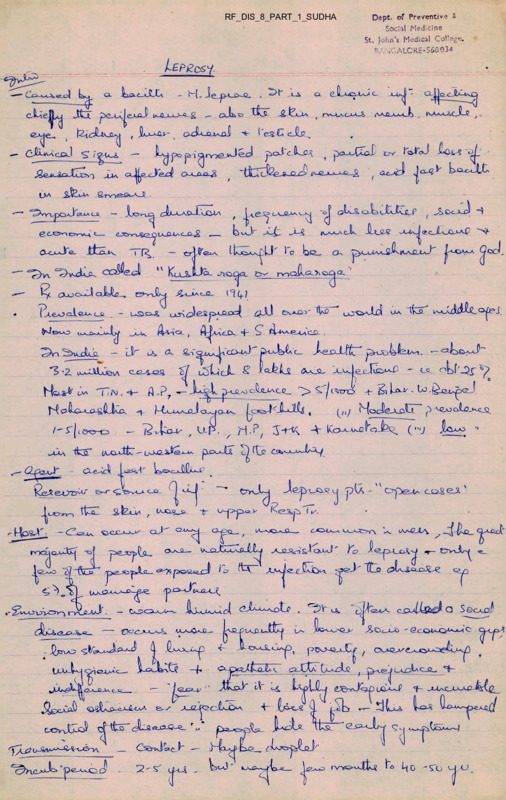 RF_DIS_8_PART_1_SUDHA
Dept. of Preventive &
Social Medicine
St. John's Medical College,
BANGALORE-560034
LEPROSY.
Intro
- Caused by a bacilli - M. leprae. It is a chronic infn affecting
chiefly the peripheral nerves - also the skin, mucus memb, muscle,
eye, kidney, liver, adrenal & testicle.
- Clinical Signs - hypopigmented patches, partial or total loss of
sensation in affected areas, thickened nerves, acid fast bacilli
in skin smears.
- Importance - long duration, frequency of disabilities, social &
economic consequences - but it is much less infectious &
acute than TB. - often thought to be a punishment from God.
- In India called "Kushta roga or maharoga"
- Rx available only since 1941
. Prevalence - was widespread all over the world in the middle ages.
Now mainly in Asia, Africa & S. America.
In India - it is a significant public health problem. - about
3.2 million cases of which 8 lakhs are infectious - ie abt 25%
Most in T.N. & A.P, - high prevalence > 5/1000 + Bihar. W. Bengal
Maharashtra & Himalayan foothills. (ii) Moderate prevalence
1-5/1000 - Bihar, U.P., M.P, J+K & Karnataka (iii) low "
in the north-western parts of the country
- Agent - acid fast bacillus.
Reservoir or source of inf - only leprosy pts - "open cases"
from the skin, nose & upper Resp Tr.
- Host - Can occur at any age, more common in men, The great
majority of people are naturally resistant to leprosy & only a
few of the people exposed to the infection get the disease eg
5% of marriage partners
. Environment - warm humid climate. It is often called a social
disease - occurs more frequently in lower socio-economic grps,
. low standard of living & housing, poverty, overcrowding,
unhygienic habits & apathetic attitude, prejudice &
indifference - "fear" that it is highly contagious & incurable
Social ostracism or rejection & loss of job - This has hampered
control of the disease ∵ people hide the early symptoms
Transmission - Contact - Maybe droplet
Incub period - 2-5 yrs. but maybe few months to 40-50 yrs.